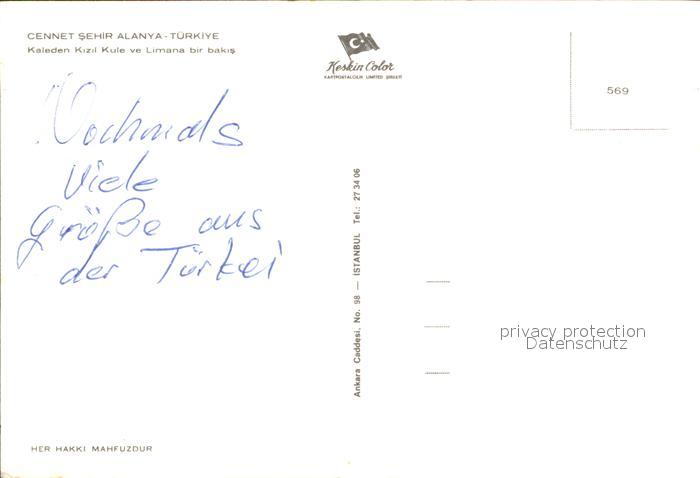 CENNET ŞEHİR ALANYA - TÜRKİYE
Kaleden Kızıl Kule ve Limana bir bakış
Nochmals
Viele
Größe aus
der Türkei
HER HAKKI MAHFUZDUR
Keskin Color
KARTPOSTALCILIK LIMITED ŞİRKETİ
Ankara Caddesi, No. 98 — İSTANBUL Tel.: 27 34 06
569
privacy protection
Datenschutz